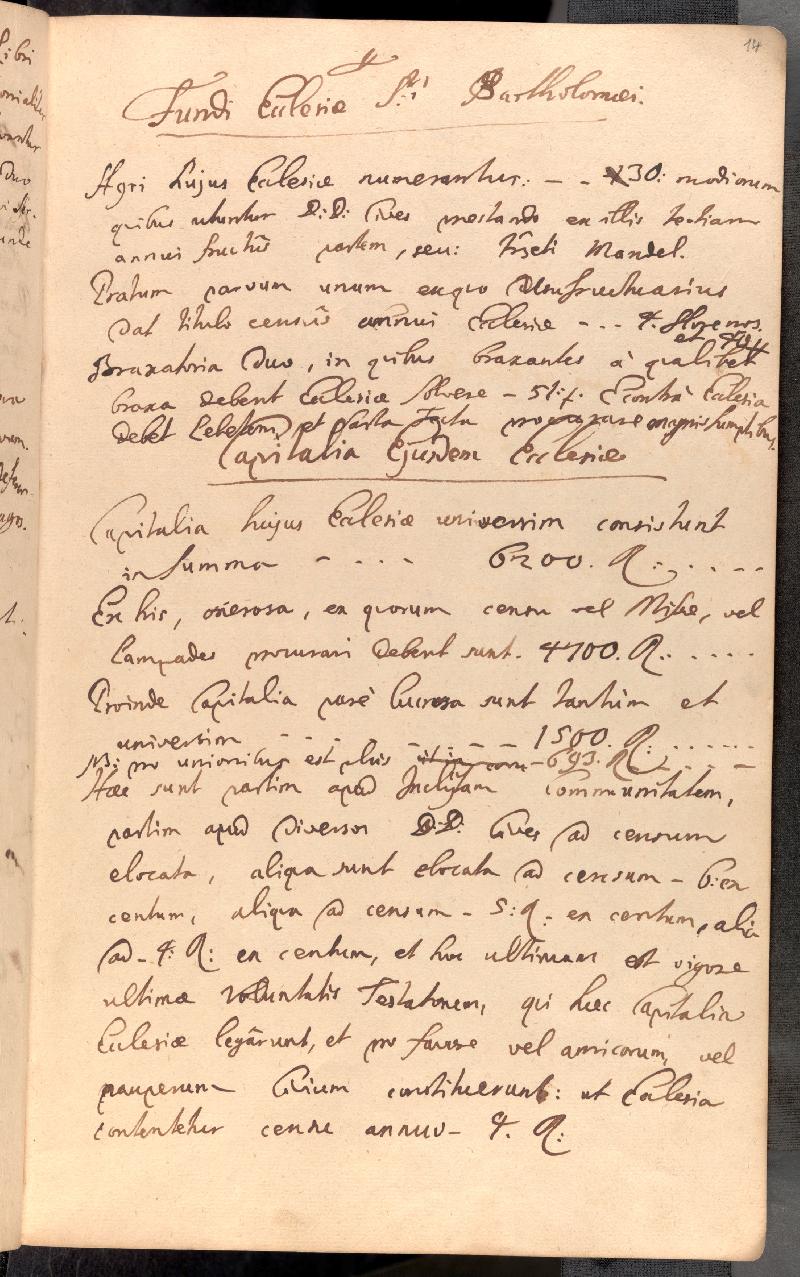 14
Fundi Eccłesiæ Sti Bartholomæi.
Agri hujus Ecclesiæ numerantur: – – 130: modiorum
quibus utuntur D:D: Cives præstando ex illis tertiam
annui fructûs partem, seu: Mandel.
Pratum parvum unum ex quo Usufructuarius
dat titulo censûs annui Ecclesiæ - - - 4. florenos.
et
Braxatoria duo, in quibus braxantes à qualibet
braxa debent Ecclesiæ solvere – 51: x. Econtrà Ecclesia
debet et sarta tecta procurare magnis sumptibus.
Capitalia Ejusdem Ecclesiæ
Capitalia hujus Ecclesiæ universim consistunt
in summa - - - - 6200. R: - - - -
Ex his, onerosa, ex quorum censu vel Missæ, vel
lampades procurari debent sunt. 4700. R: - - - -
Proinde Capitalia purè lucrosa sunt tantùm et
universim - - - - - - 1500. R: - - - - -
NB: pro unionibus est plus - 693. R: - - -
Hæc sunt partim apud Inclytam Communitatem,
partim apud diversos D:D: Cives ad censum
elocata, aliqua sunt elocata ad censum – 6: ex
centum, aliqua ad censum – 5: R: ex centum, alia
ad – 4: R: ex centum, et hoc ultimum est vigore
ultimæ voluntatis Testatorum, qui hæc Capitalia
Ecclesiæ legârunt, et pro favore vel amicorum, vel
pauperum Civium constituerunt: ut Ecclesia
contentetur censu annuo – 4. R: